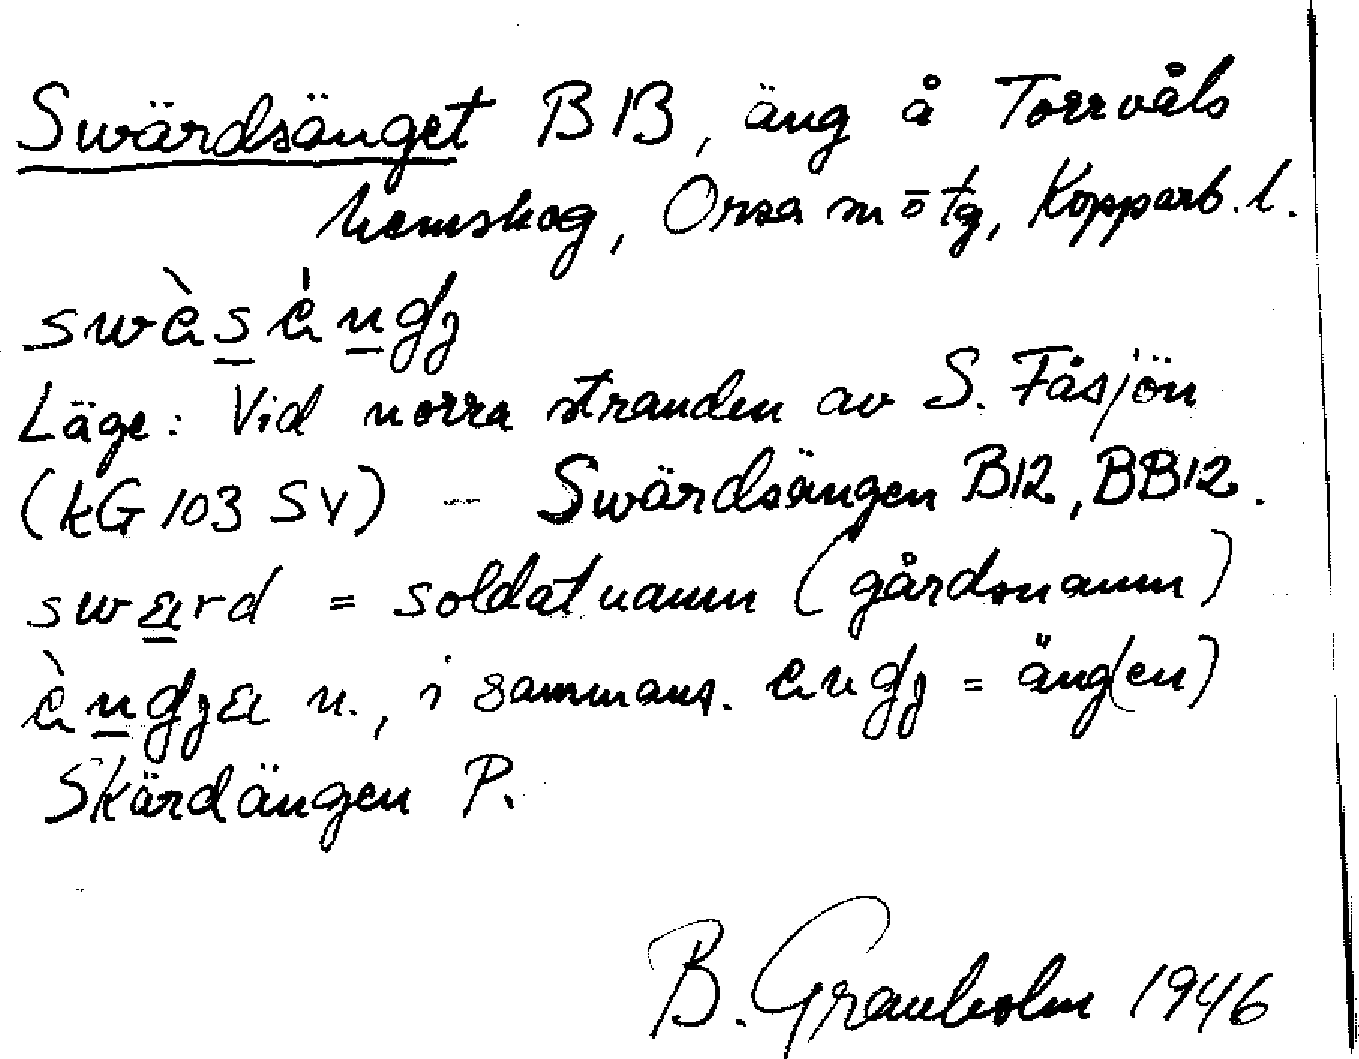 Swärdsänget B13, äng å Torrvåls
hemskog, Orsa sn o tg, Kopparb. l.
swὲsὲngʒ
Läge: Vid norra stranden av S. Fåsjön
(kG 103 SV) – Swärdsängen B12, BB12.
swærd = soldatnamn (gårdsnamn)
ὲngʒa n., i sammans. ɛngʒ = äng(en)
Skärdängen P.
B. Granholm 1946